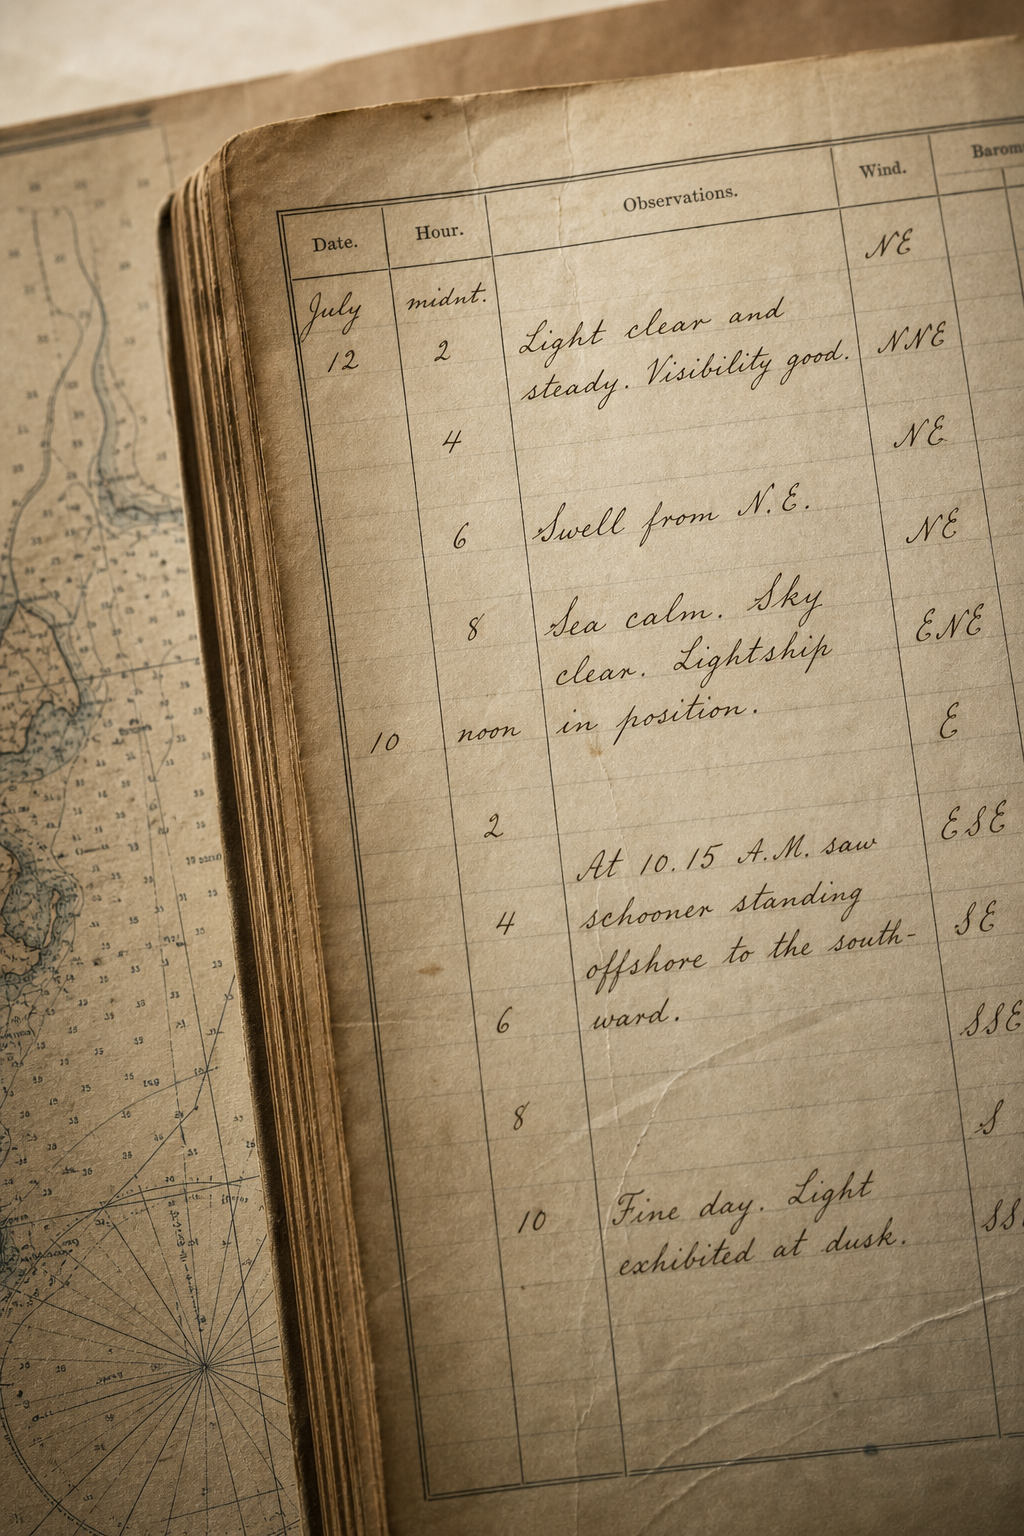 Date. Hour. Observations. Wind. Barom
NE
July midnt.
12 2 Light clear and
steady. Visibility good. NNE
4 NE
6 Swell from N.E. NE
8 Sea calm. Sky ENE
clear. Lightship
10 noon in position. E
2 ESE
At 10.15 A.M. saw
4 schooner standing SE
offshore to the south-
6 ward. SSE
8 S
10 Fine day. Light SS
exhibited at dusk.